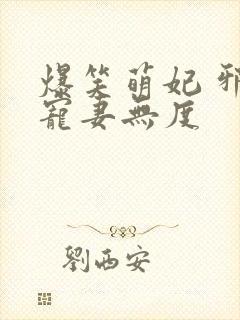 爆笑萌妃 邪
寵妻無度
劉西安